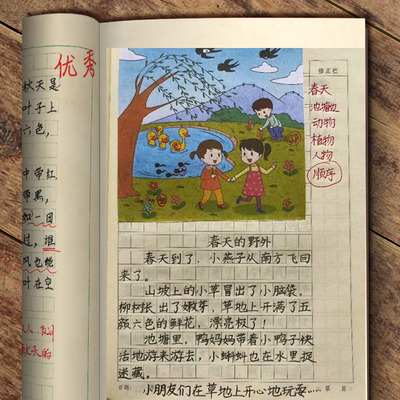 优秀
秋天是
叶子上
六色，
中带红
带黑，
如一团
过，谁
风也能
叶在空
秋天的
修正栏
春天
池塘边
动物
植物
人物
顺序
春天的野外
春天到了，小燕子从南方飞回
来了。
山坡上的小草冒出了小脑袋，
柳树长出了嫩芽，草地上开满了五
颜六色的鲜花，漂亮极了！
池塘里，鸭妈妈带着小鸭子快
活地游来游去，小蝌蚪也在水里捉
迷藏。
小朋友们在草地上开心地玩耍……
日期：
第 页